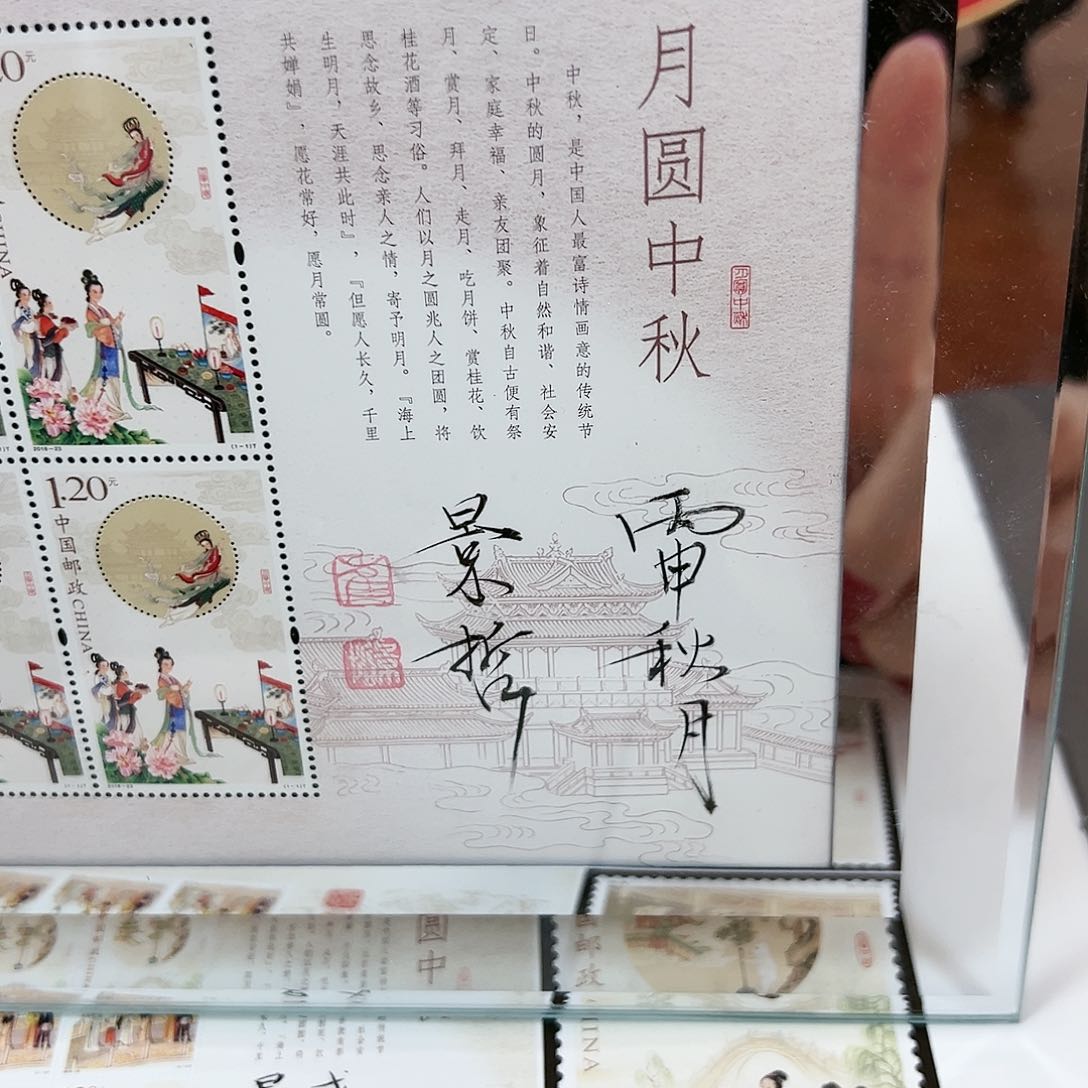 月圆中秋
中秋，是中国人最富诗情画意的传统节
日。中秋的圆月，象征着自然和谐、社会安
定、家庭幸福、亲友团聚。中秋自古便有祭
月、赏月、拜月、走月、吃月饼、赏桂花、饮
桂花酒等习俗。人们以月之圆兆人之团圆，将
思念故乡、思念亲人之情，寄予明月。『海上
生明月，天涯共此时』，『但愿人长久，千里
共婵娟』，愿花常好，愿月常圆。
秋月
景哲
20元
CHINA
2018-23
(1-1)T
1.20元
中国邮政CHINA
2018-23
(1-1)T
圆中
邮政
CHINA